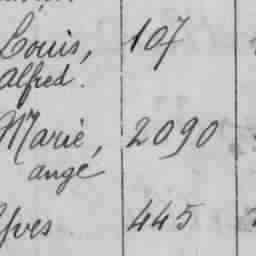 Louis, 107
Alfred.
Marie, 2090
ange
Yves 445